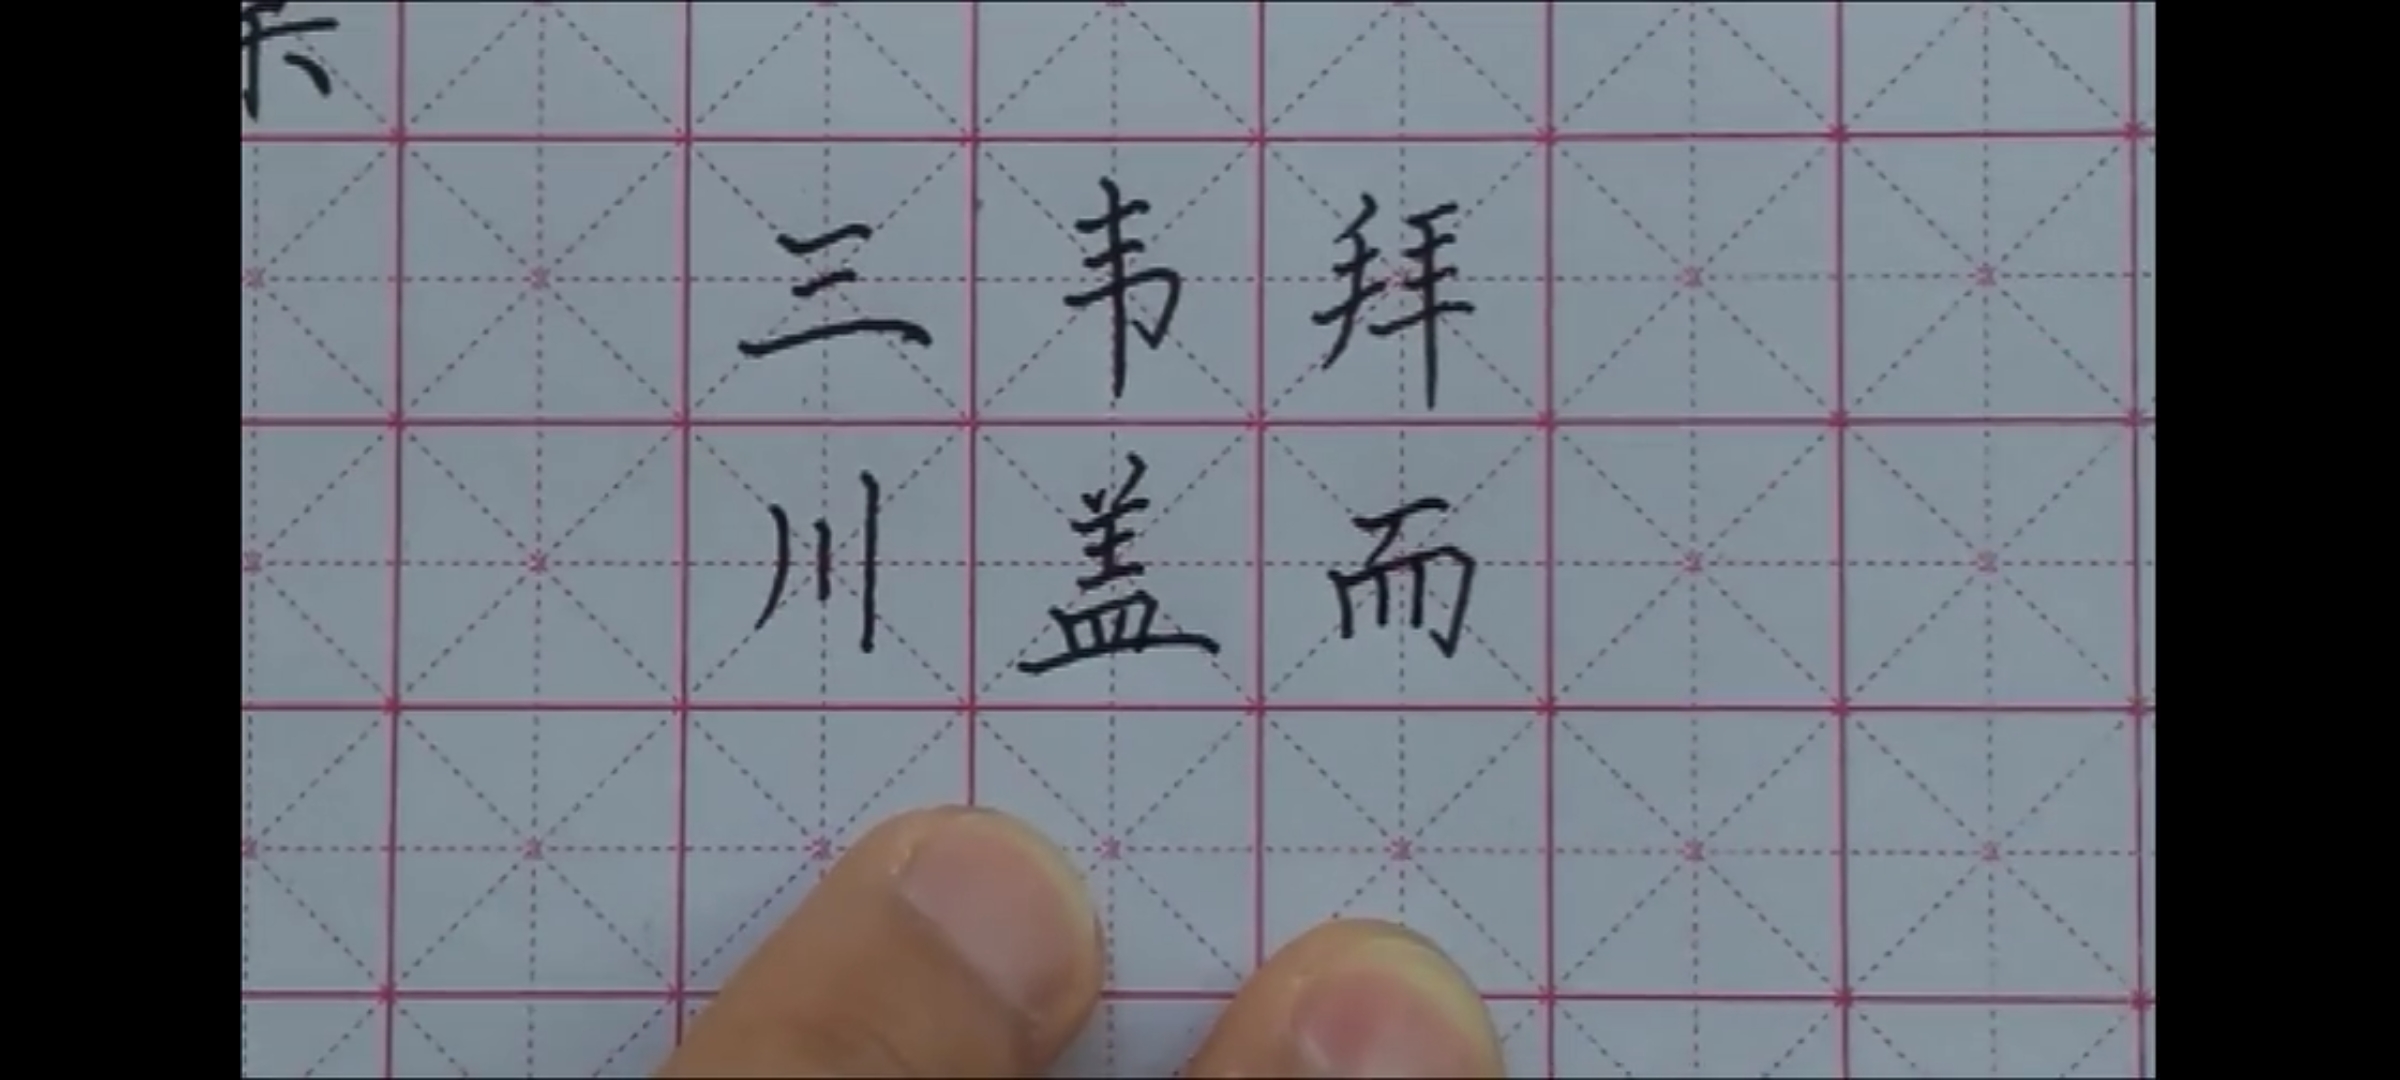 三韦拜
川盖而